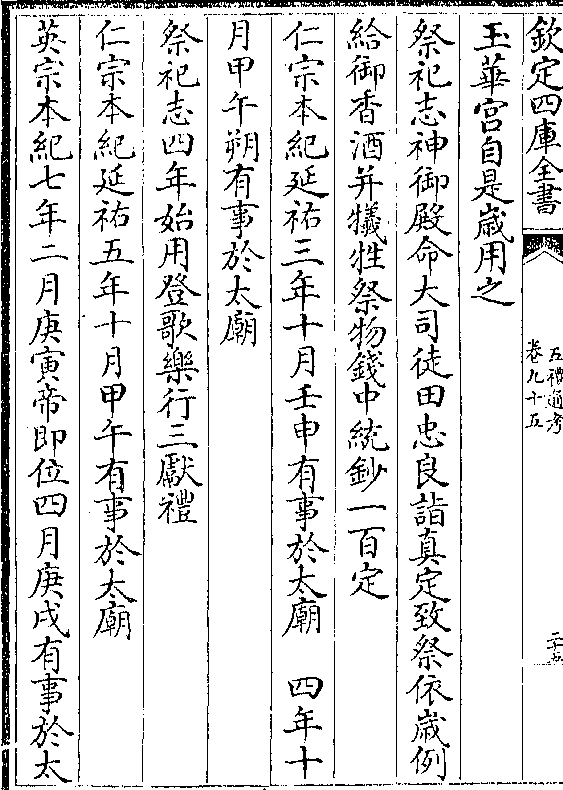 欽定四庫全書
五禮通考
卷九十五
二十五
玉華宮自是歲用之
祭祀志神御殿命大司徒田忠良詣真定致祭依歲例
給御香酒并犧牲祭物錢中統鈔一百定
仁宗本紀延祐三年十月壬申有事於太廟　四年十
月甲午朔有事於太廟
祭祀志四年始用登歌樂行三獻禮
仁宗本紀延祐五年十月甲午有事於太廟
英宗本紀七年二月庚寅帝即位四月庚戌有事於太